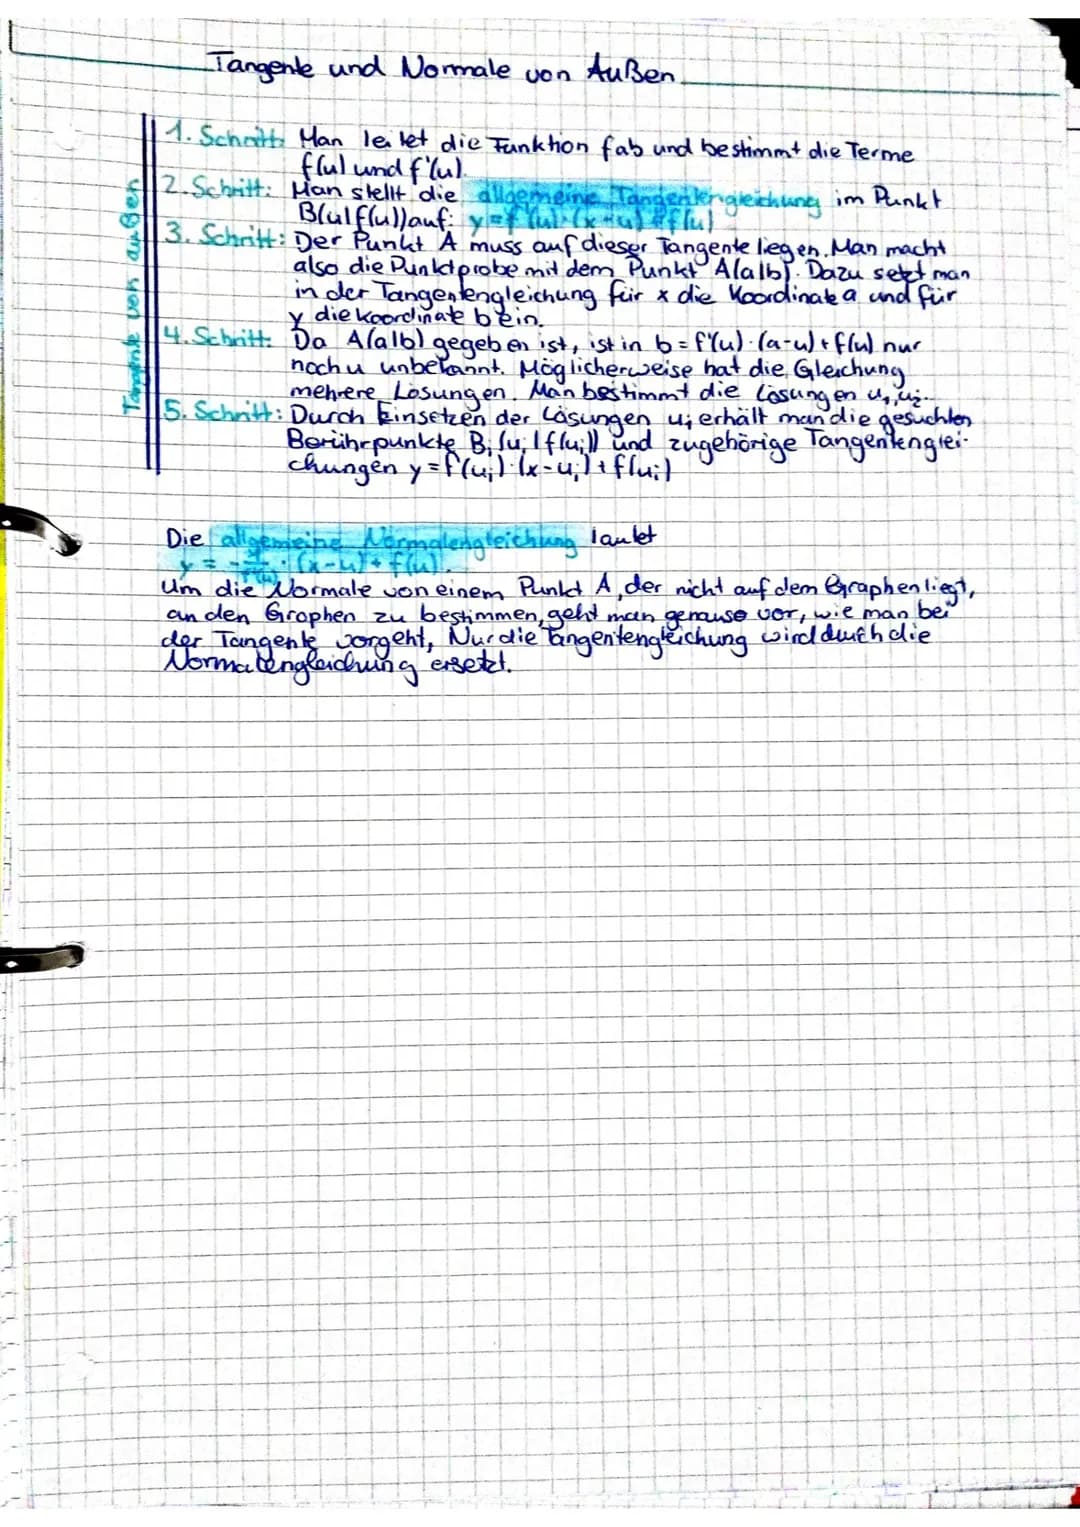 Tangente und Normale von Außen
Tangente von außen
1. Schritt: Man leitet die Funktion f ab und bestimmt die Terme
f(u) und f'(u).
2. Schritt: Man stellt die allgemeine Tangentengleichung im Punkt
B(u|f(u)) auf: y=f'(u)·(x-u)+f(u)
3. Schritt: Der Punkt A muss auf dieser Tangente liegen. Man macht
also die Punktprobe mit dem Punkt A(a|b). Dazu setzt man
in der Tangentengleichung für x die Koordinate a und für
y die Koordinate b ein.
4. Schritt: Da A(a|b) gegeben ist, ist in b=f'(u)·(a-u)+f(u) nur
noch u unbekannt. Möglicherweise hat die Gleichung
mehrere Lösungen. Man bestimmt die Lösungen u₁, u₂...
5. Schritt: Durch Einsetzen der Lösungen uᵢ erhält man die gesuchten
Berührpunkte Bᵢ(uᵢ|f(uᵢ)) und zugehörige Tangentenglei-
chungen y=f'(uᵢ)·(x-uᵢ)+f(uᵢ)
Die allgemeine Normalengleichung lautet
y = -1/f'(u)·(x-u)+f(u).
Um die Normale von einem Punkt A, der nicht auf dem Graphen liegt,
an den Graphen zu bestimmen, geht man genauso vor, wie man bei
der Tangente vorgeht, Nur die Tangentengleichung wird durch die
Normalengleichung ersetzt.